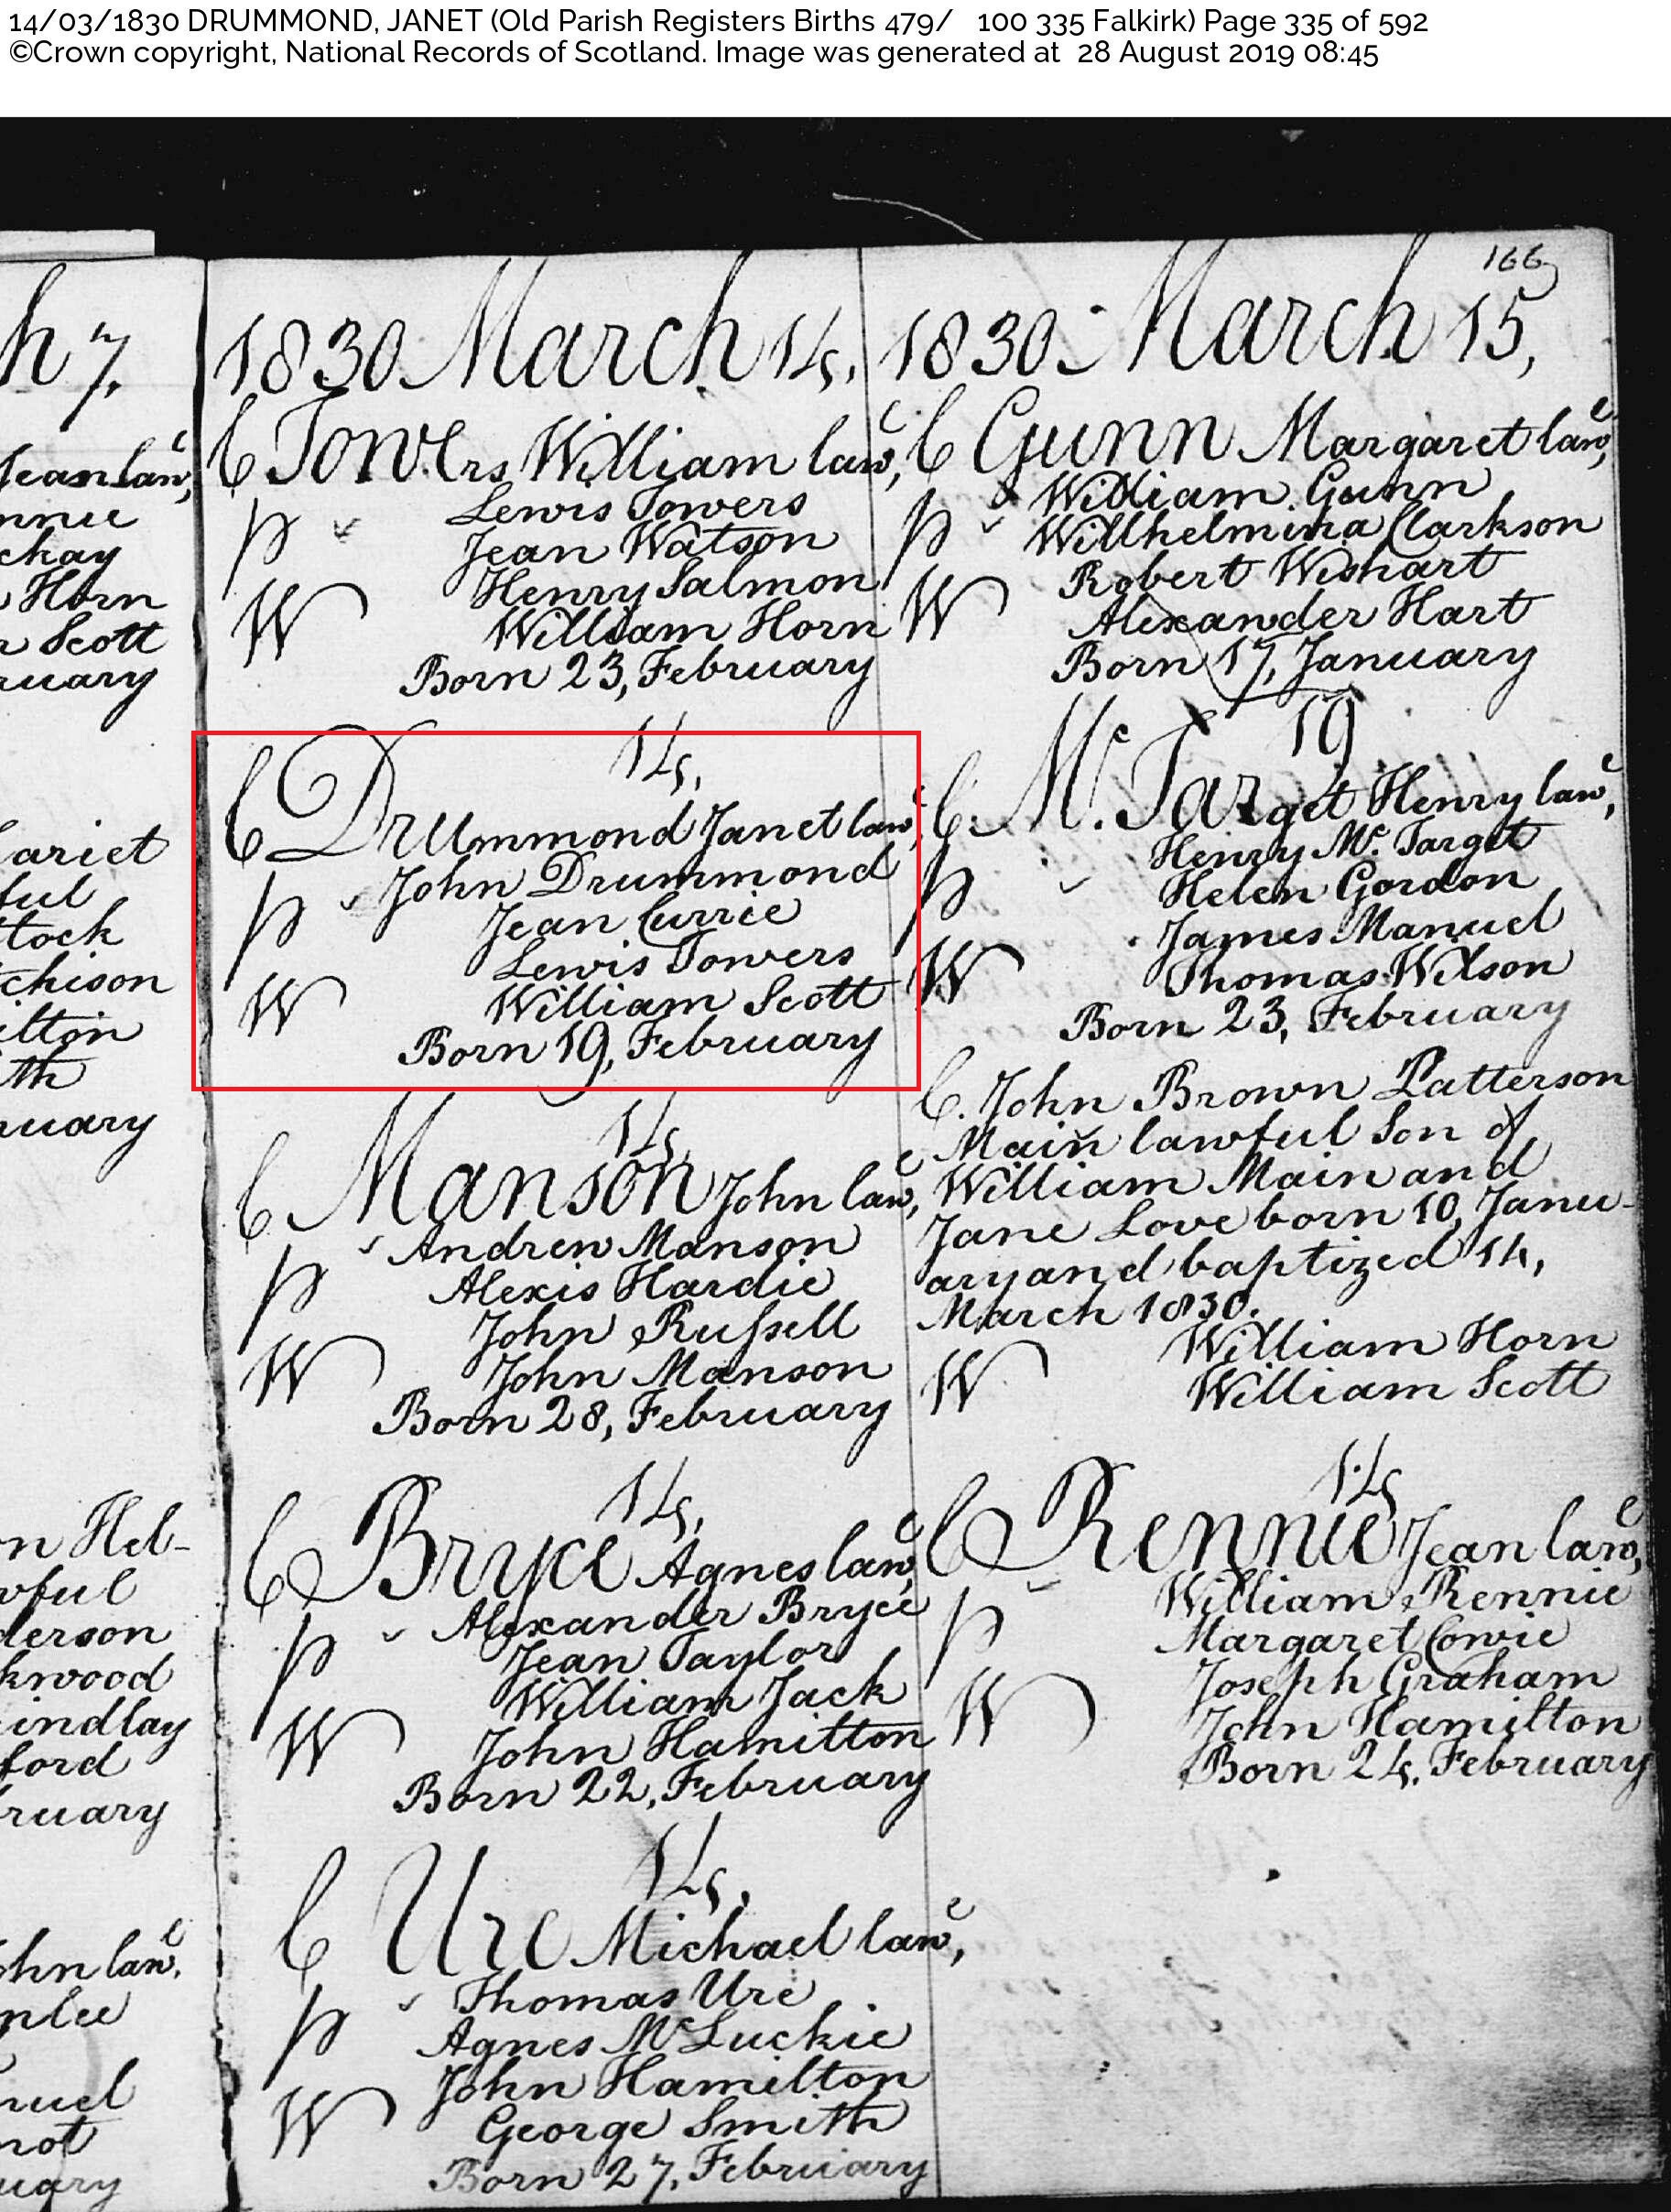 14/03/1830 DRUMMOND, JANET (Old Parish Registers Births 479/ 100 335 Falkirk) Page 335 of 592
©Crown copyright, National Records of Scotland. Image was generated at 28 August 2019 08:45
h 7.
Jean law,
nnie
ckay
Horn
r Scott
ruary
ariet
ful
ttock
chison
ilton
ith
ruary
n Hel-
wful
derson
kwood
indlay
ford
ruary
ohn law.
nlee
nuel
not
uary
1830 March 14,
C Towers William lawe,
p Lewis Towers
Jean Watson
W Henry Salmon
William Horn
Born 23, February
14,
C Drummond Janet lawe,
p John Drummond
Jean Currie
Lewis Towers
W William Scott
Born 19, February
14,
C Manson John lawe,
p Andrew Manson
Alexis Hardie
John Russell
W John Manson
Born 28, February
14,
C Bryce Agnes lawe,
p Alexander Bryce
Jean Taylor
William Jack
W John Hamilton
Born 22, February
14,
C Ure Michael lawe,
p Thomas Ure
Agnes McLuckie
John Hamilton
W George Smith
Born 27, February
166
1830 March 15,
C Gunn Margaret lawe,
William Gunn
p Willhelmina Clarkson
Robert Wishart
W Alexander Hart
Born 17, January
19
C. Mc. Target Henry lawe,
Henry Mc. Target
p Helen Gordon
James Manuel
W Thomas Wilson
Born 23, February
C. John Brown Patterson
Main lawful Son of
William Main and
Jane Love born 10, Janu-
ary and baptized 14,
March 1830.
William Horn
W William Scott
14
C Rennie Jean lawe,
p William Rennie
Margaret Cowie
Joseph Graham
W John Hamilton
Born 24, February